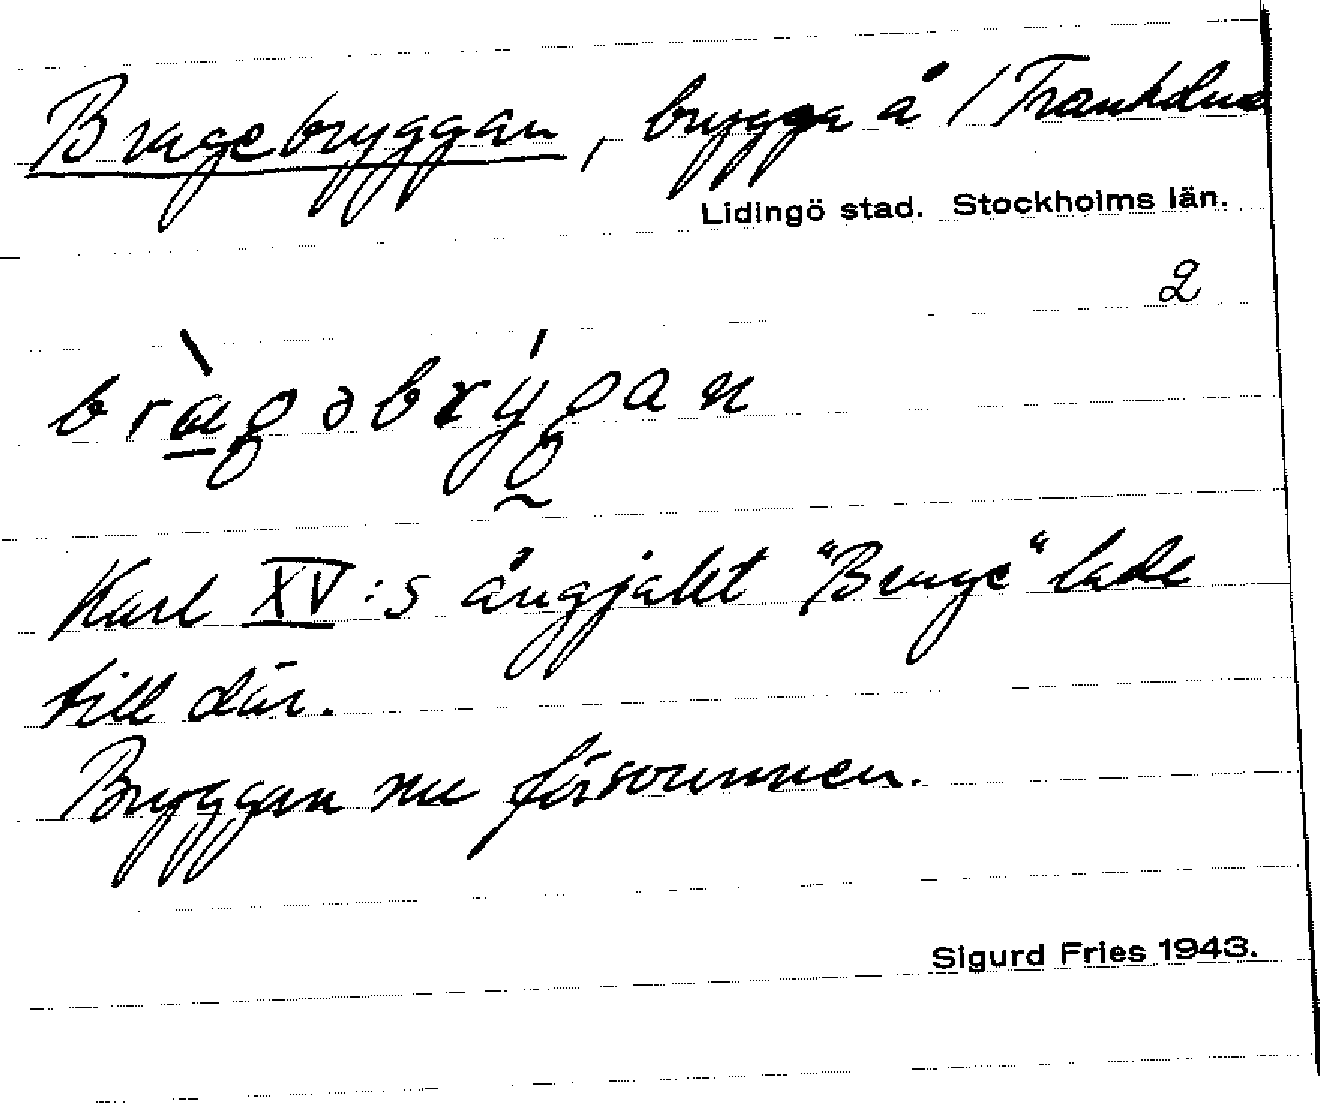 Bragebryggan, brygga å / Frankelund
Lidingö stad. Stockholms län.
2
brɑ̀gəbrýgan
Karl XV:s ångjakt "Brage" lade
till där.
Bryggan nu försvunnen.
Sigurd Fries 1943.